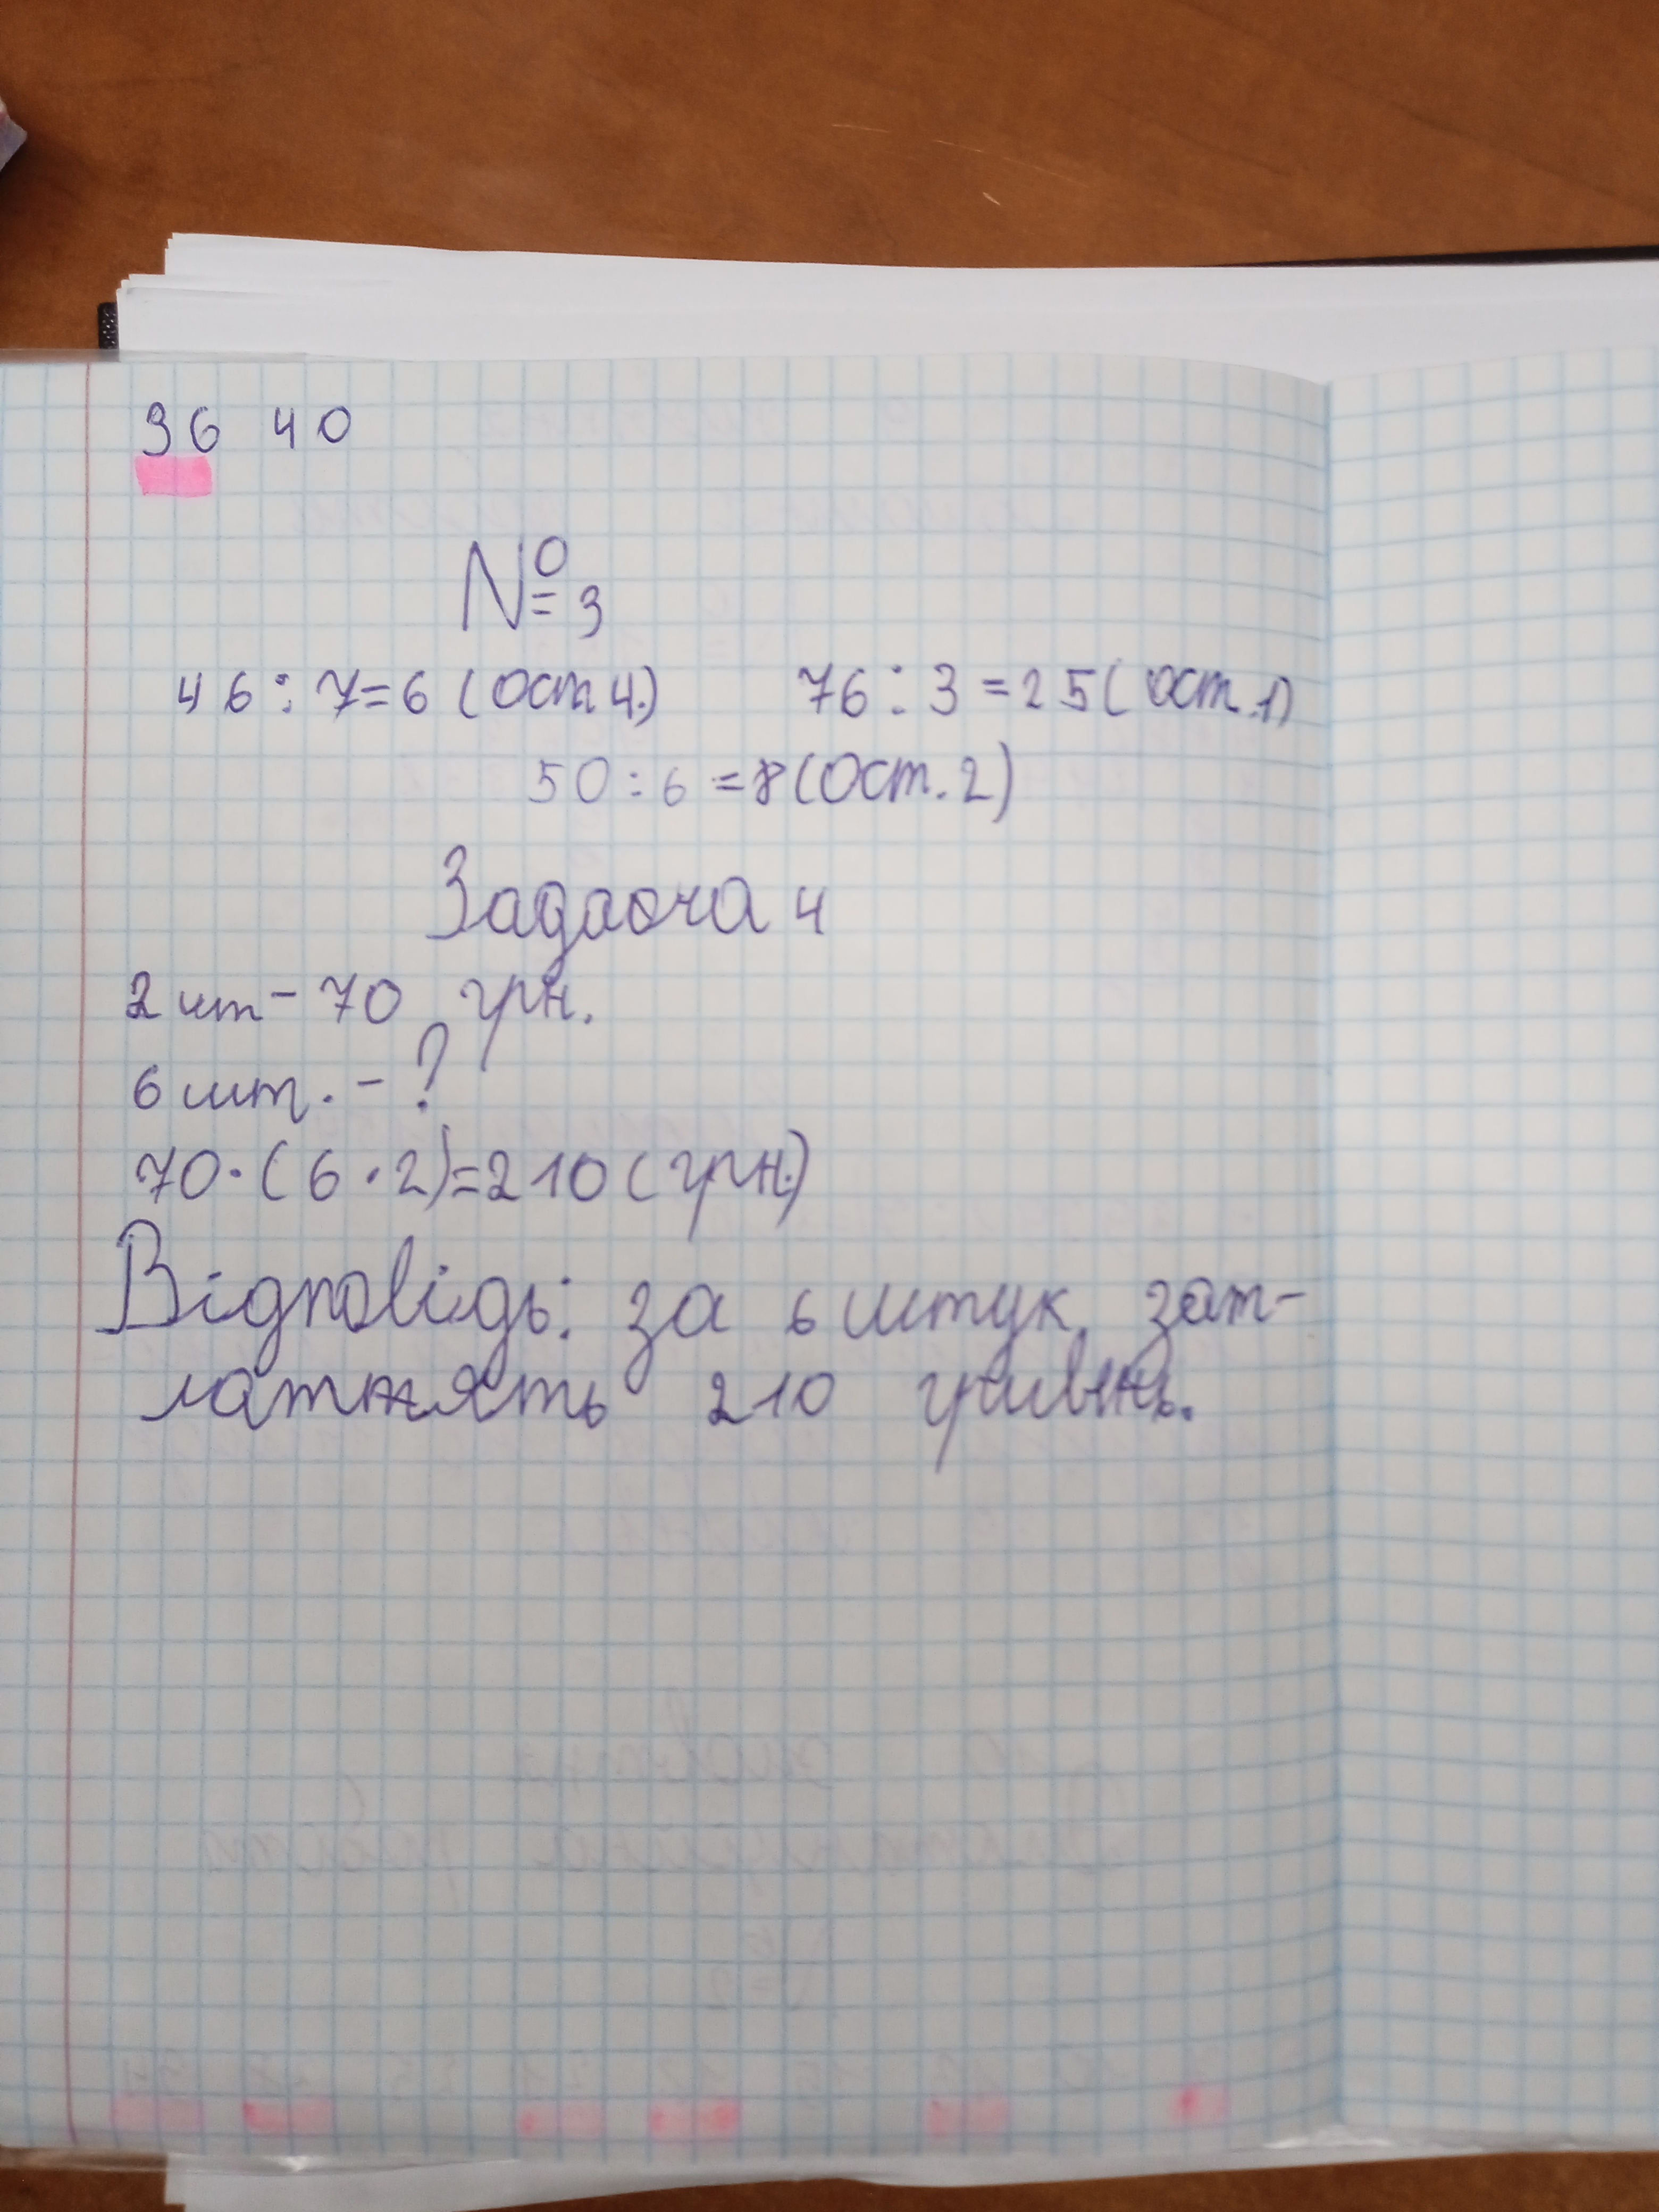 36 40
№3
46 : 7 = 6 (ост 4.) 76 : 3 = 25 (ост. 1)
50 : 6 = 8 (ост. 2)
Задаоча 4
2 шт - 70 грн.
6 шт. - ?
70 · (6 · 2) = 210 (грн.)
Відповідь: за 6 штук зап-
латжять 210 гривень.